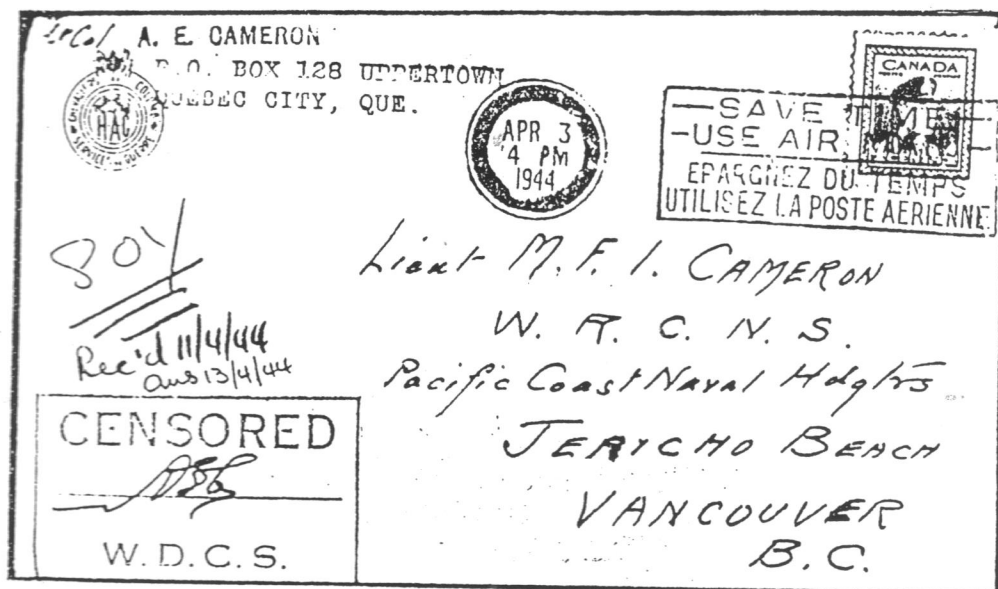 Lt Col A. E. CAMERON
P.O. BOX 128 UPPERTOWN
QUEBEC CITY, QUE.
HAC
SERVICE
APR 3
4 PM
1944
CANADA
SAVE TIME
USE AIR
EPARGNEZ DU TEMPS
UTILISEZ LA POSTE AERIENNE
804
Rec'd 11/4/44
ans 13/4/44
Lieut M. F. I. CAMERON
W. R. C. N. S.
Pacific Coast Naval Hdqtrs
JERICHO BEACH
VANCOUVER
B.C.
CENSORED
W.D.C.S.